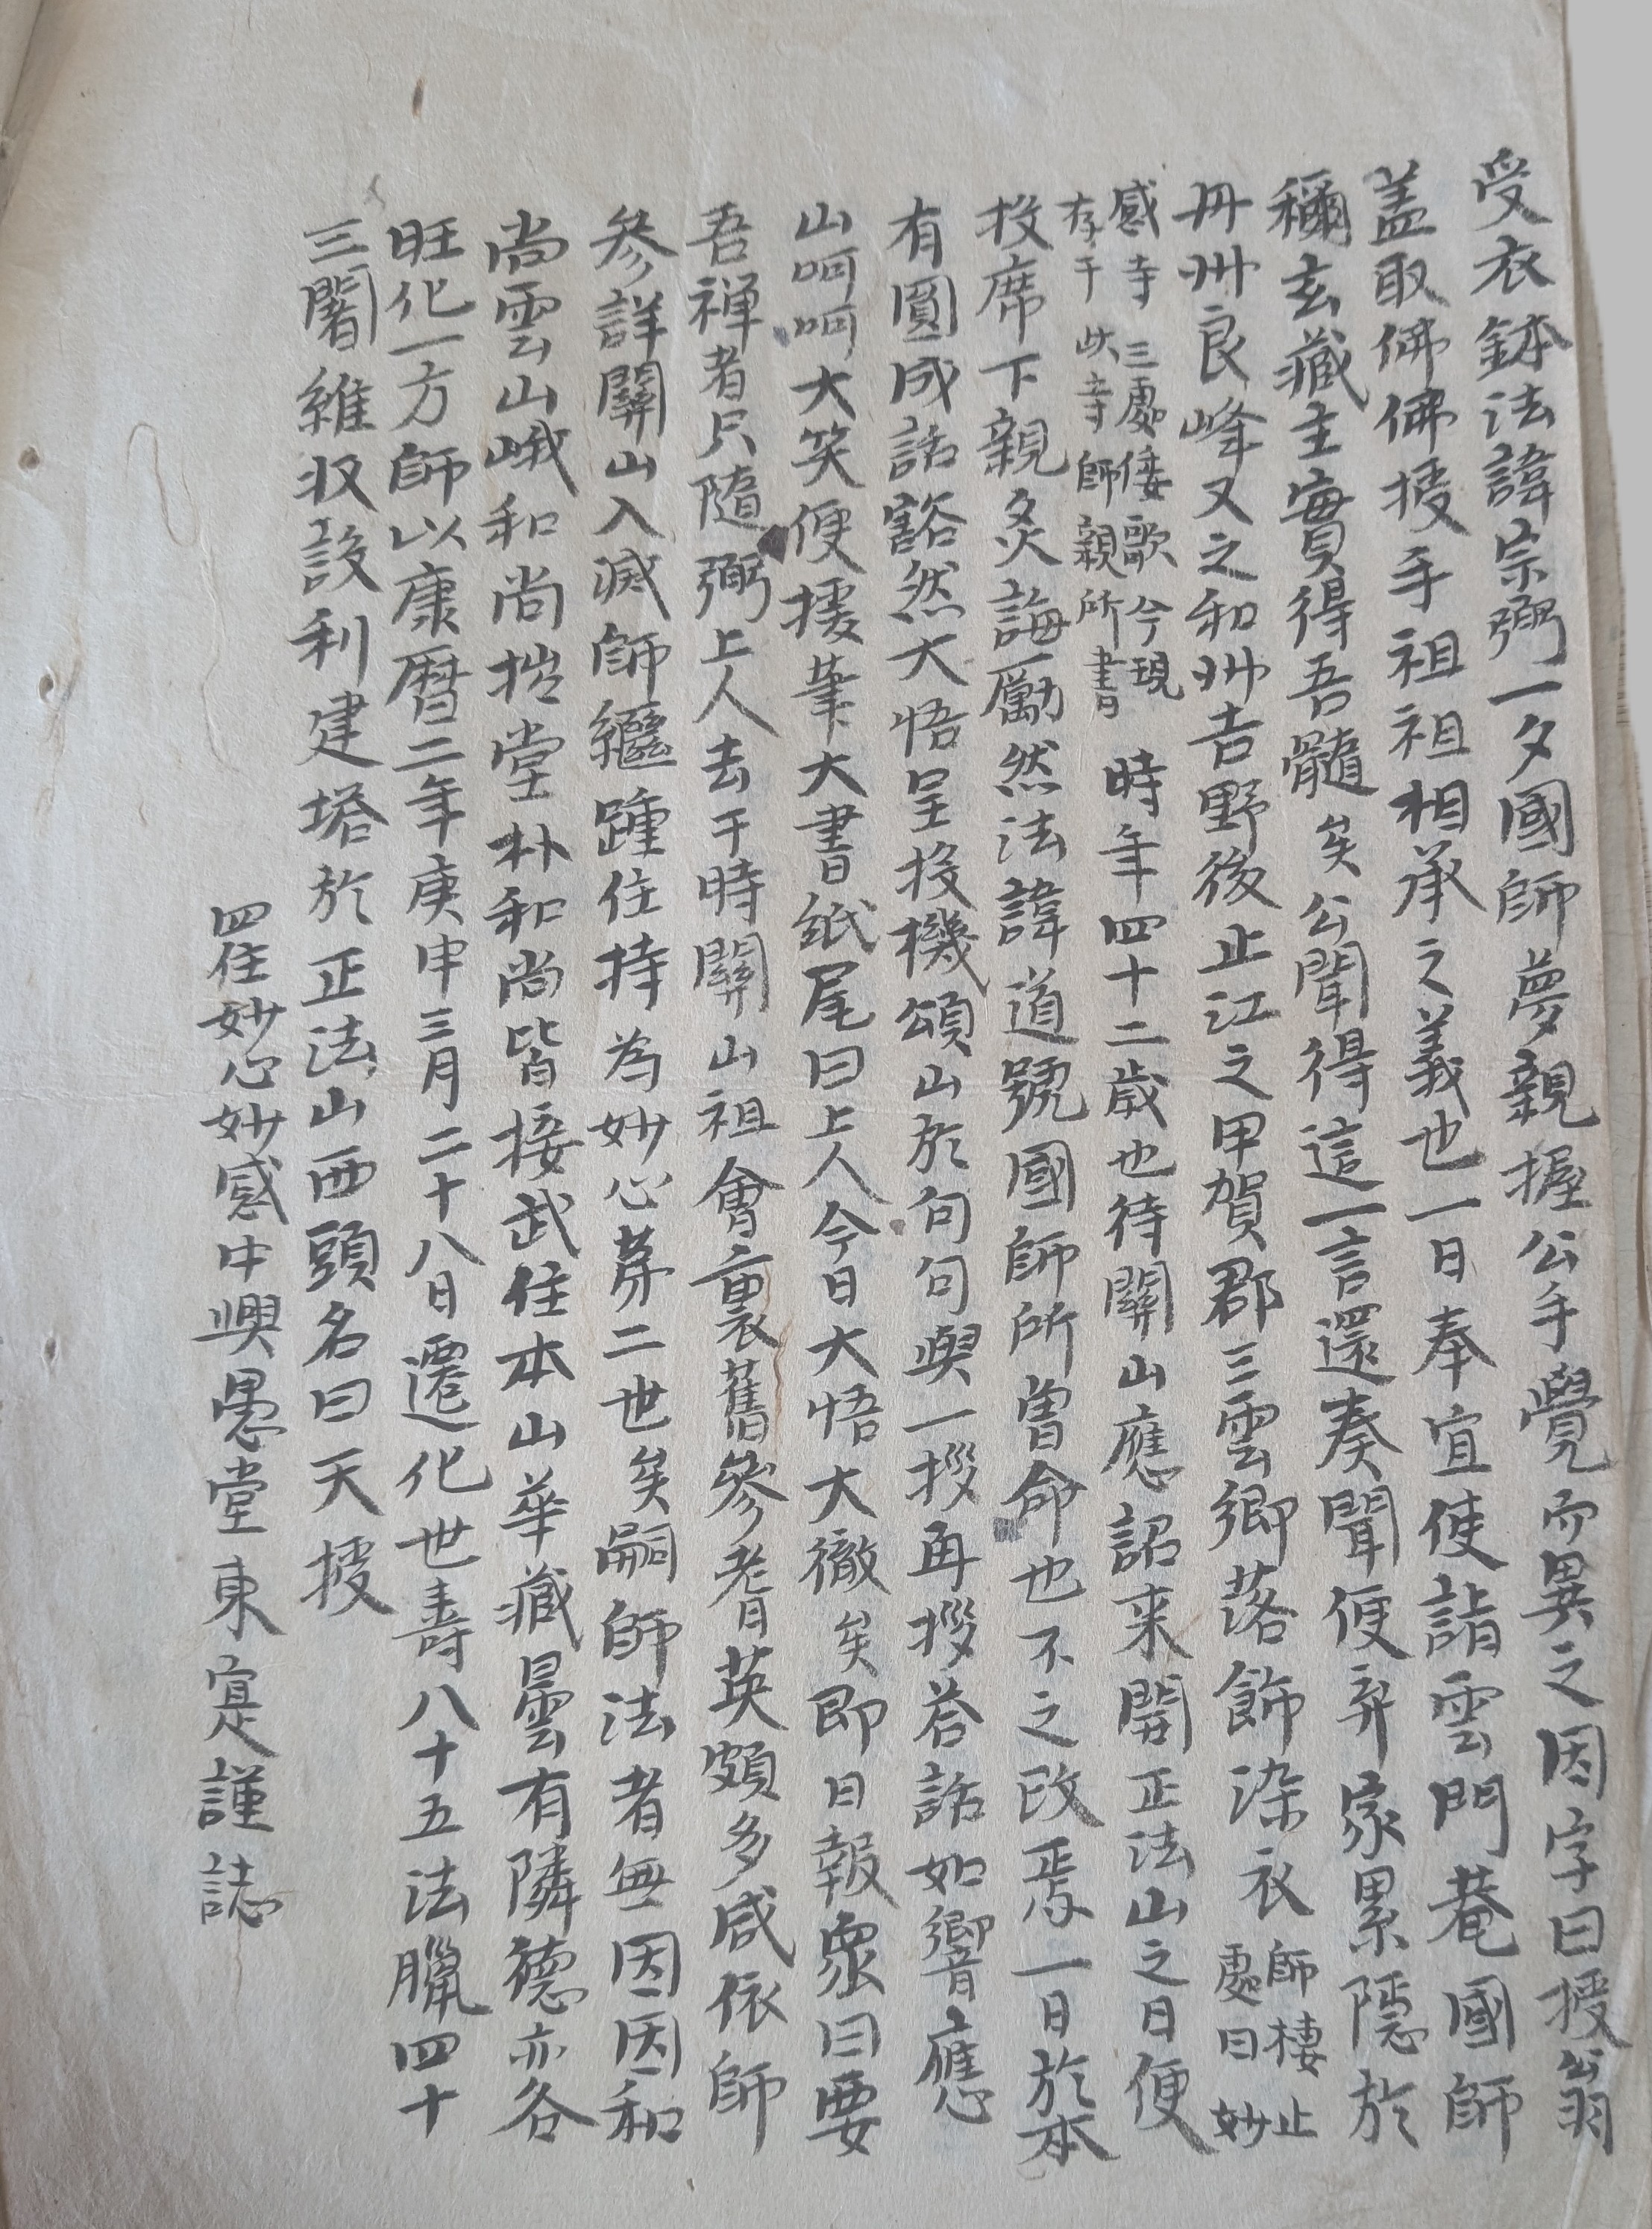 受衣鉢法諱宗弼一夕國師夢親握公手覺而異之因字曰授翁
盖取佛佛授手祖祖相承之義也一日奉宣使詣雲門菴國師
稱玄藏主實得吾髓矣公聞得這一言還奏聞便弃家累隱於
丹州良峰又之和州吉野後止江之甲賀郡三雲鄉落飾染衣師棲止處曰妙
感寺三處倭歌今現存于此寺師親所書時年四十二歲也待關山應詔来開正法山之日便
投席下親炙誨勵然法諱道號國師所曽命也不之改焉一日於本
有圓成話豁然大悟呈投機頌山於句句與一拶再拶荅話如響應
山呵呵大笑便援筆大書紙尾曰上人今日大悟大徹矣即日報衆曰要
吾禅者只隨弼上人去于時關山祖會裏舊參耆英頗多咸依師
參詳關山入滅師繼踵住持為妙心苐二世矣嗣師法者無因因和
尚雲山峨和尚拙堂朴和尚皆接武住本山華藏曇有隣德亦各
旺化一方師以康曆二年庚申三月二十八日遷化世壽八十五法臘四十
三闍維収設利建塔於正法山西頭名曰天授
四住妙心妙感中興愚堂東寔謹誌